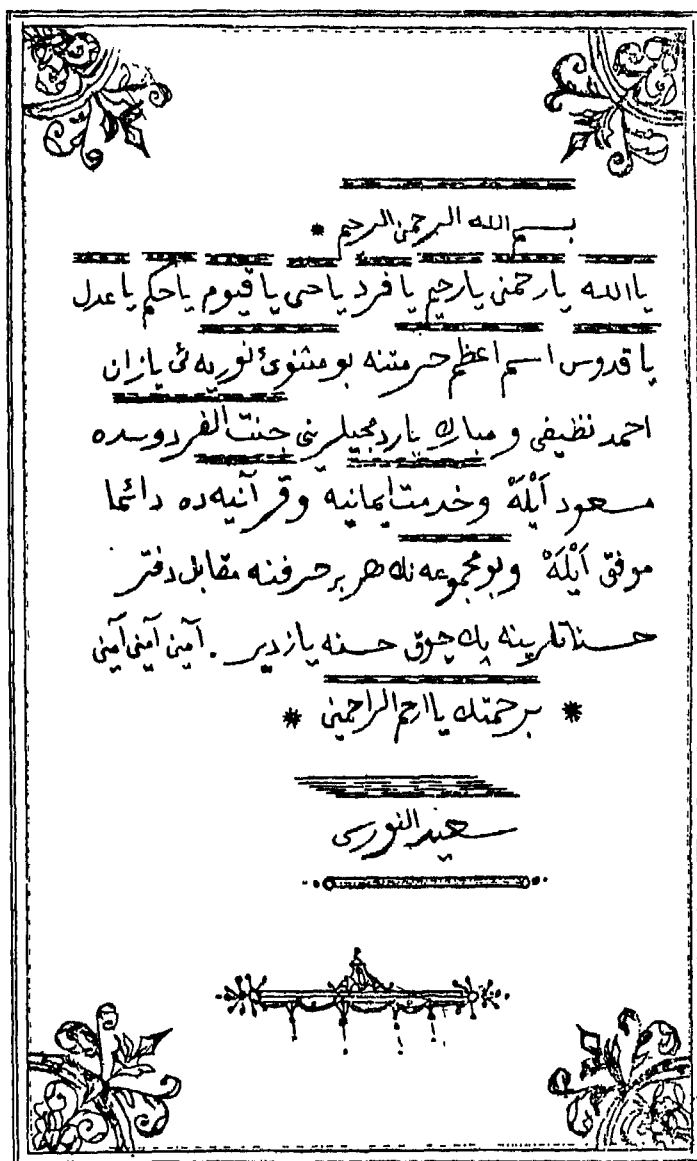 بسم الله الرحمن الرحيم *
يا الله يا رحمن يا رحيم يا فرد يا حى يا قيوم يا حكم يا عدل
يا قدوس اسم اعظم حرمتنه بو مثنوئ نوريه ئى يازان
احمد نظيفى و مبارك ياردمجيلرينى جنت الفردوسده
مسعود اَيْلَهْ وخدمت ايمانيه وقرآنيه ده دائما
موفق اَيْلَهْ وبو مجموعه نك هر بر حرفنه مقابل دفتر
حسناتلرينه پك چوق حسنه يازدير . آمين آمين آمين
* برحمتك يا ارحم الراحمين *
سعيد النورسى